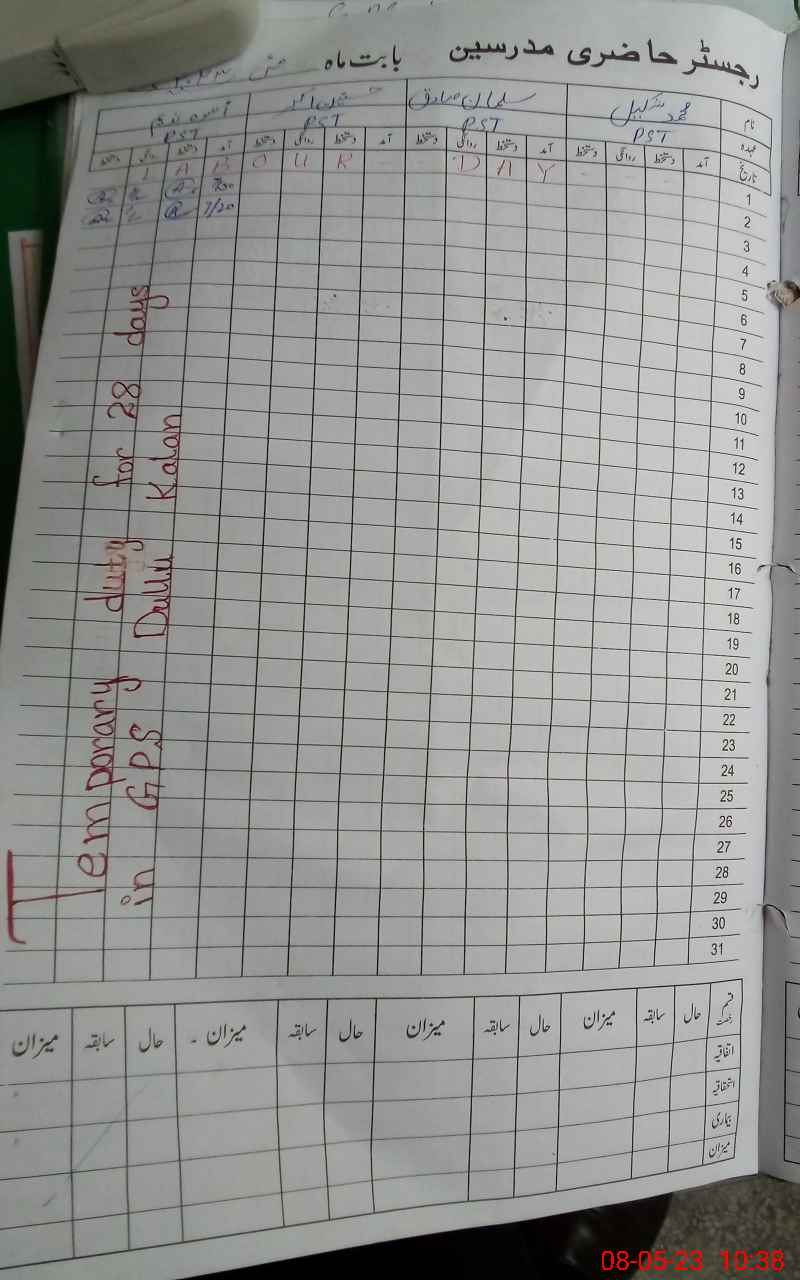 رجسٹر حاضری مدرسین بابت ماہ مئی
نام محمد شکیل سلمان صادق
عہدہ PST PST PST PST
تاریخ آمد دستخط روانگی دستخط آمد دستخط روانگی دستخط آمد دستخط روانگی دستخط آمد دستخط روانگی دستخط
L A B O U R - - D A Y - - -
1
2 7/20
3
4
5
6
7
8
9
10
11
12
13
14
15
16
17
18
19
20
21
22
23
24
25
26
27
28
29
30
31
Temporary duty for 28 days
in GPS Dullu Kalan
قسم رخصت حال سابقہ میزان حال سابقہ میزان حال سابقہ میزان حال سابقہ میزان
اتفاقیہ
استحقاقیہ
بیماری
میزان
08-05-23 10:38